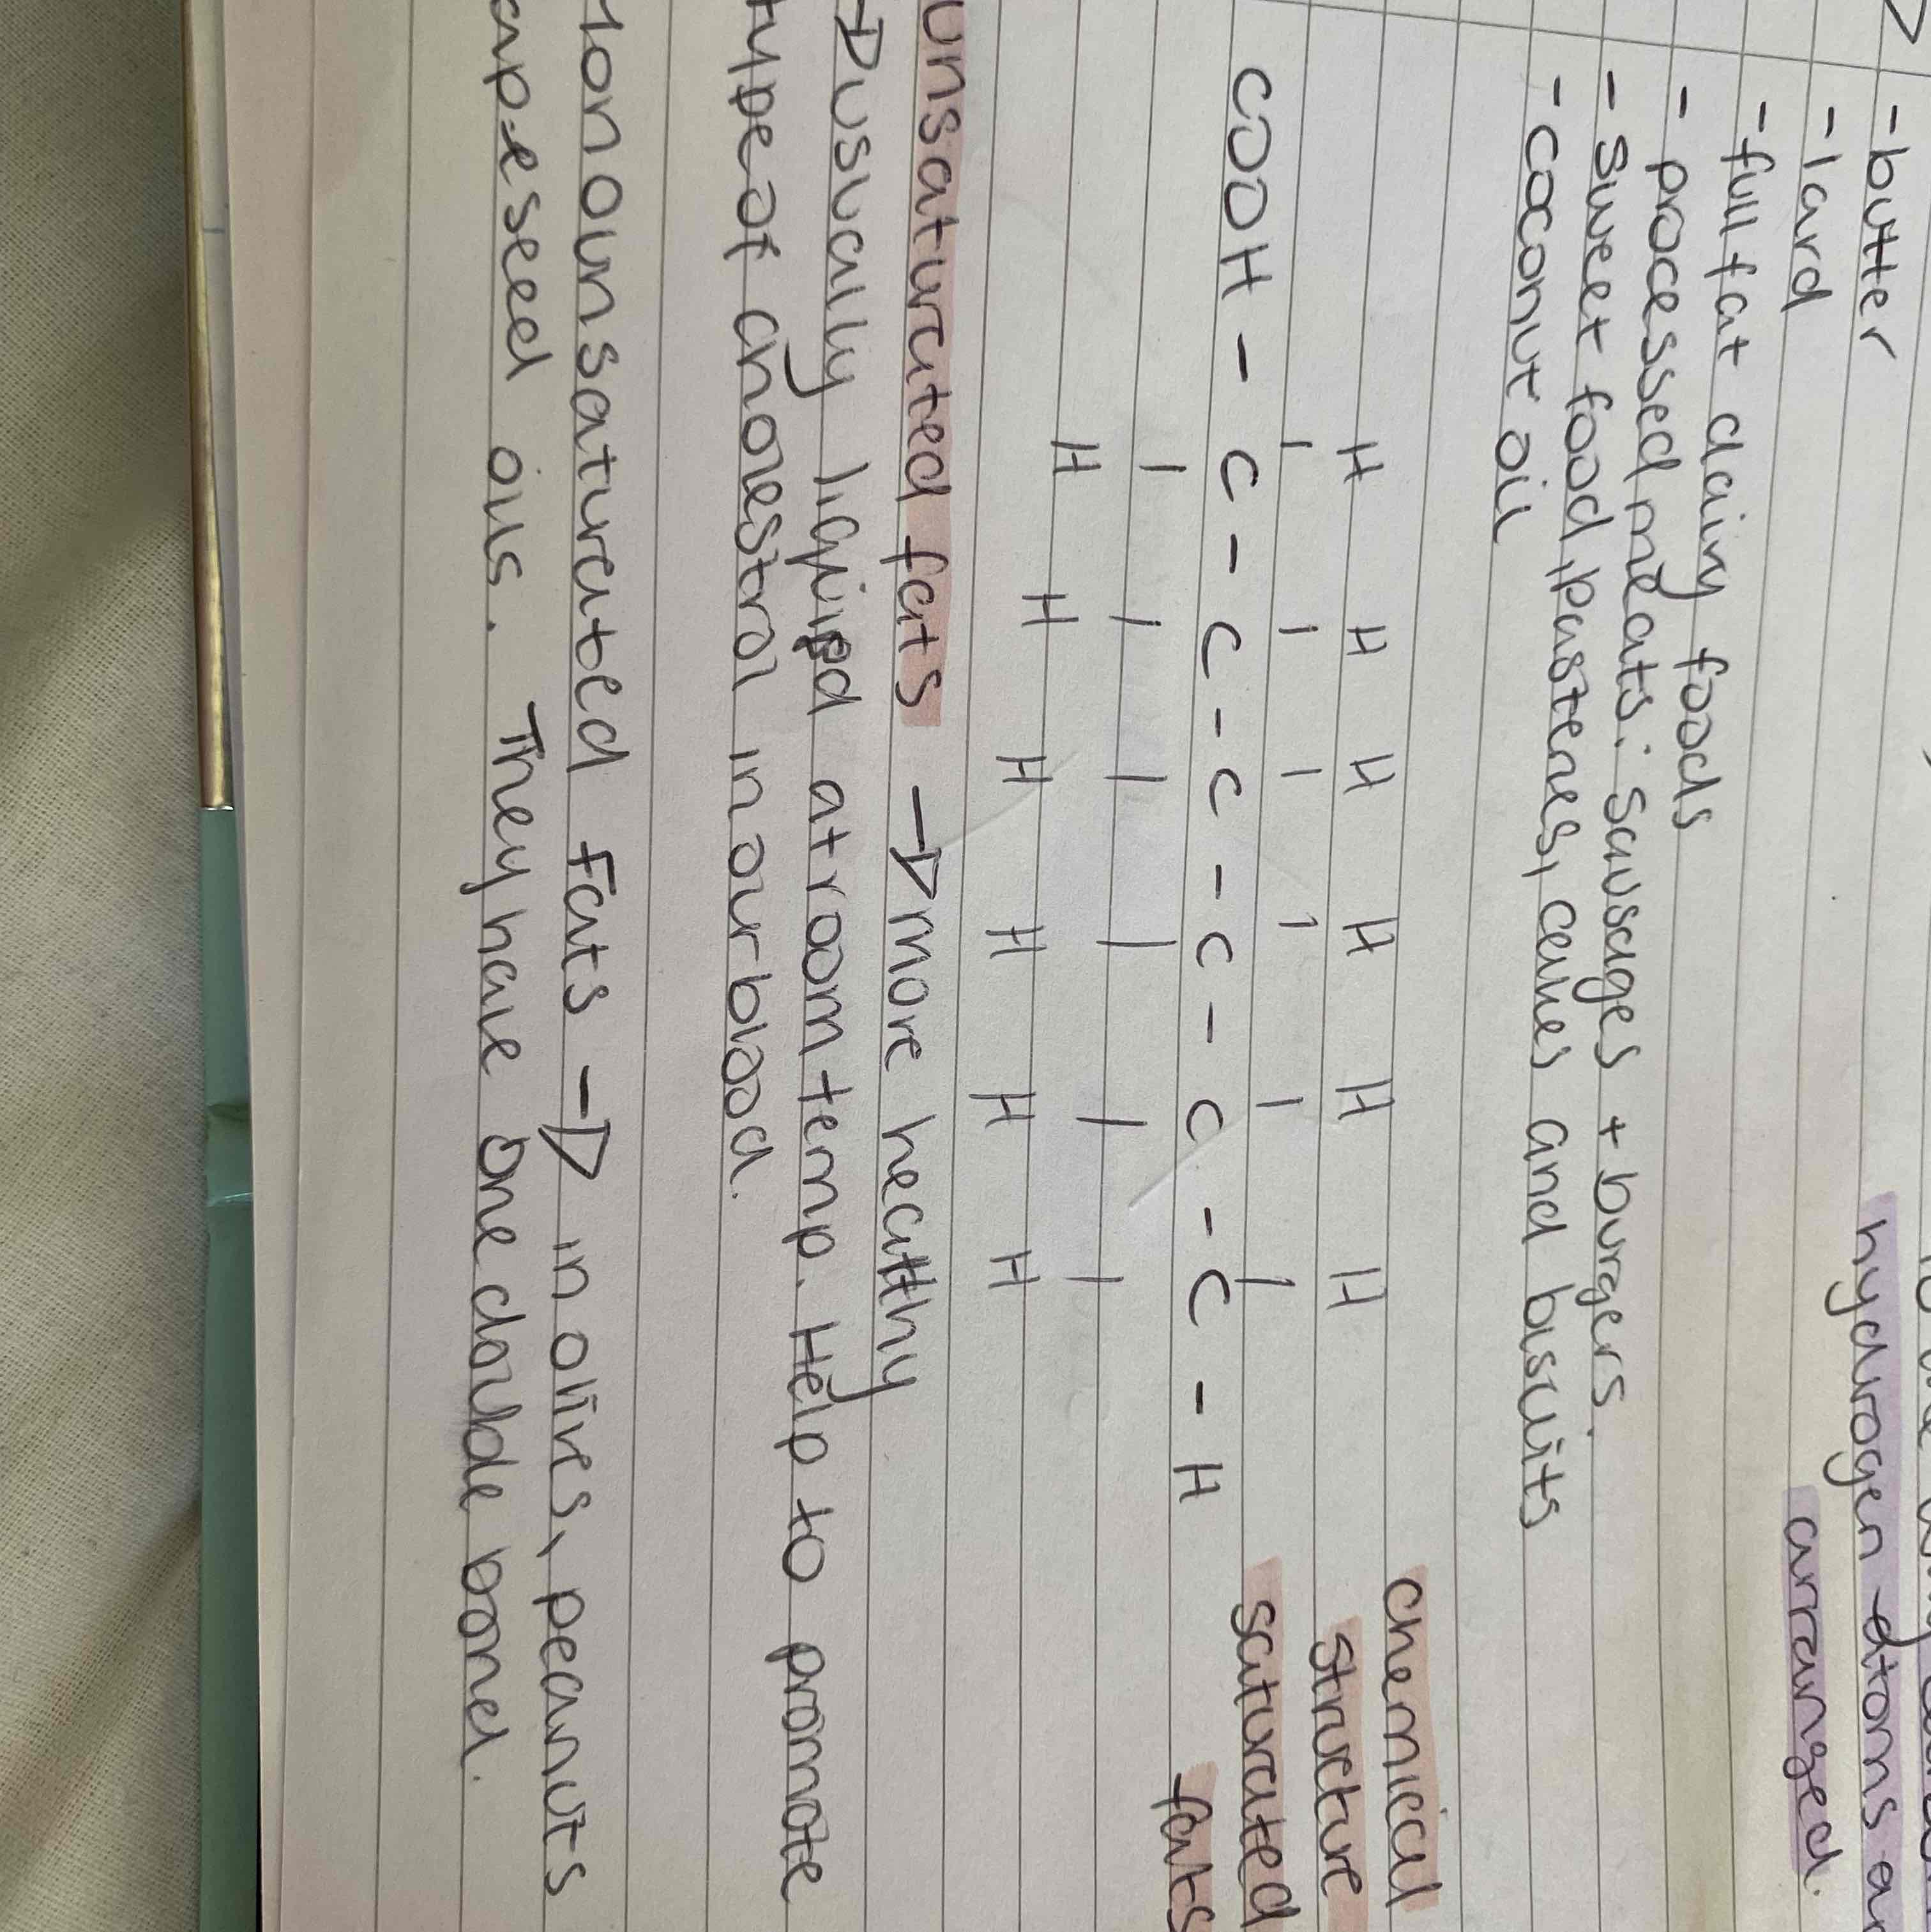 - butter
hydrogen atoms
- lard
arranged.
- full fat dairy foods
- processed meats: sausages + burgers.
- sweet food, pasteries, cakes and biscuits
- coconut oil
chemical
structure
saturated
fats
H H H H H H
COOH - C - C - C - C - C - C - H
H H H H H H
unsaturated fats → more heatlhy
→ usually liquid at room temp. Help to promote
type of cholestrol in our blood.
Monounsaturated fats → in olives, peanuts
rapeseed oils. They have one double bond.